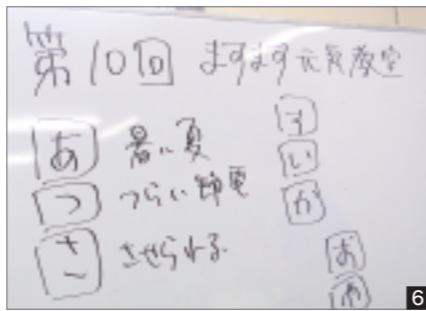 第10回 ますます元気教室
あ 暑い夏
つ つらい節電
さ させられる
す
い
か
お
や
6